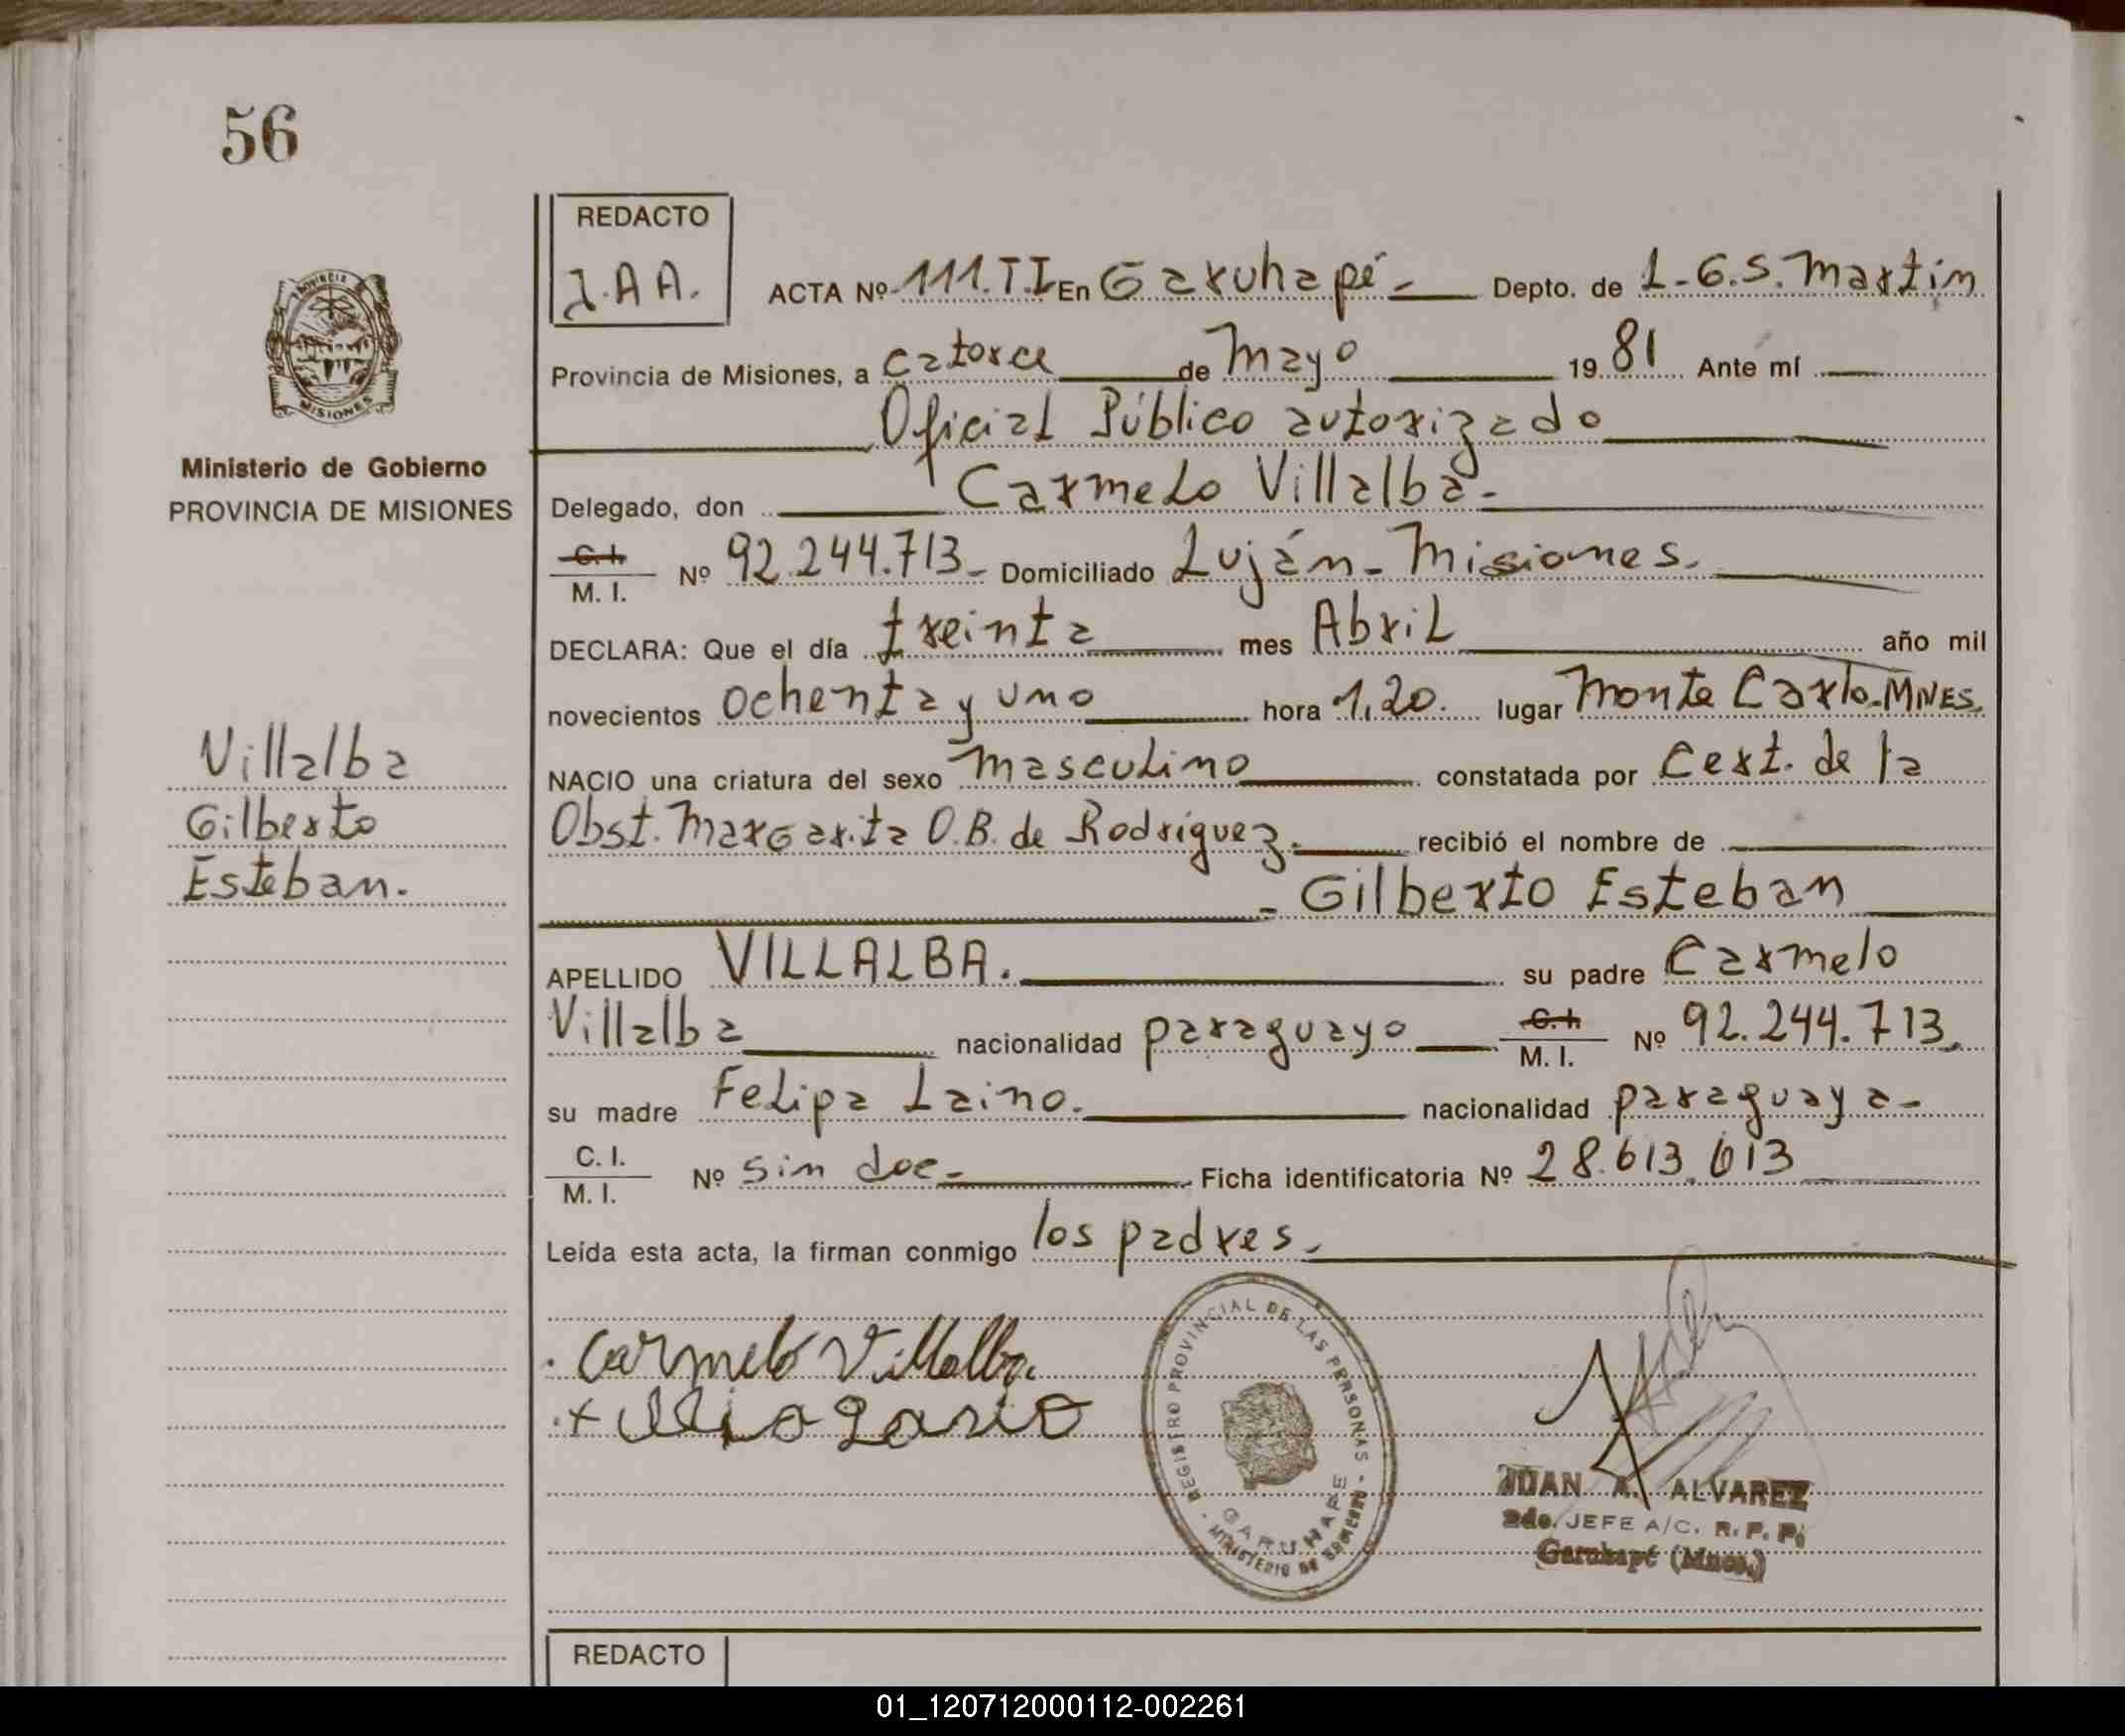 56
REDACTO
J.A A.
ACTA Nº 111.T.I En Garuhapé - Depto. de L.G.S. Martín
Provincia de Misiones, a catorce de Mayo 19 81 Ante mí
Oficial Público autorizado
PROVINCIA
MISIONES
Ministerio de Gobierno
PROVINCIA DE MISIONES
Delegado, don Carmelo Villalba-
C. I.
M. I. Nº 92.244.713- Domiciliado Luján - Misiones.
DECLARA: Que el día treinta mes Abril año mil
novecientos ochenta y uno hora 1,20. lugar Monte Carlo-MNES.
Villalba
Gilberto
Esteban.
NACIO una criatura del sexo masculino constatada por Cert. de la
Obst. Margarita O.B. de Rodríguez. recibió el nombre de
- Gilberto Esteban
APELLIDO VILLALBA. su padre Carmelo
Villalba nacionalidad paraguayo C. I.
M. I. Nº 92.244.713.
su madre Felipa Laino. nacionalidad paraguaya-
C. I.
M. I. Nº sin doc- Ficha identificatoria Nº 28.613.613
Leída esta acta, la firman conmigo los padres.
Carmelo Villalba.
REGISTRO PROVINCIAL DE LAS PERSONAS
GARUHAPE
MINISTERIO DE GOBIERNO
JUAN A. ALVAREZ
2do. JEFE A/C. R. P. P.
Garuhapé (Mnes.)
REDACTO
01_120712000112-002261